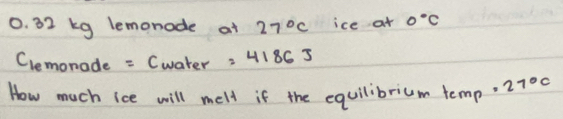 0.32 kg lemonade at 27°C ice at 0°C
Clemonade = Cwater = 4186 J
How much ice will melt if the equilibrium temp = 27°C